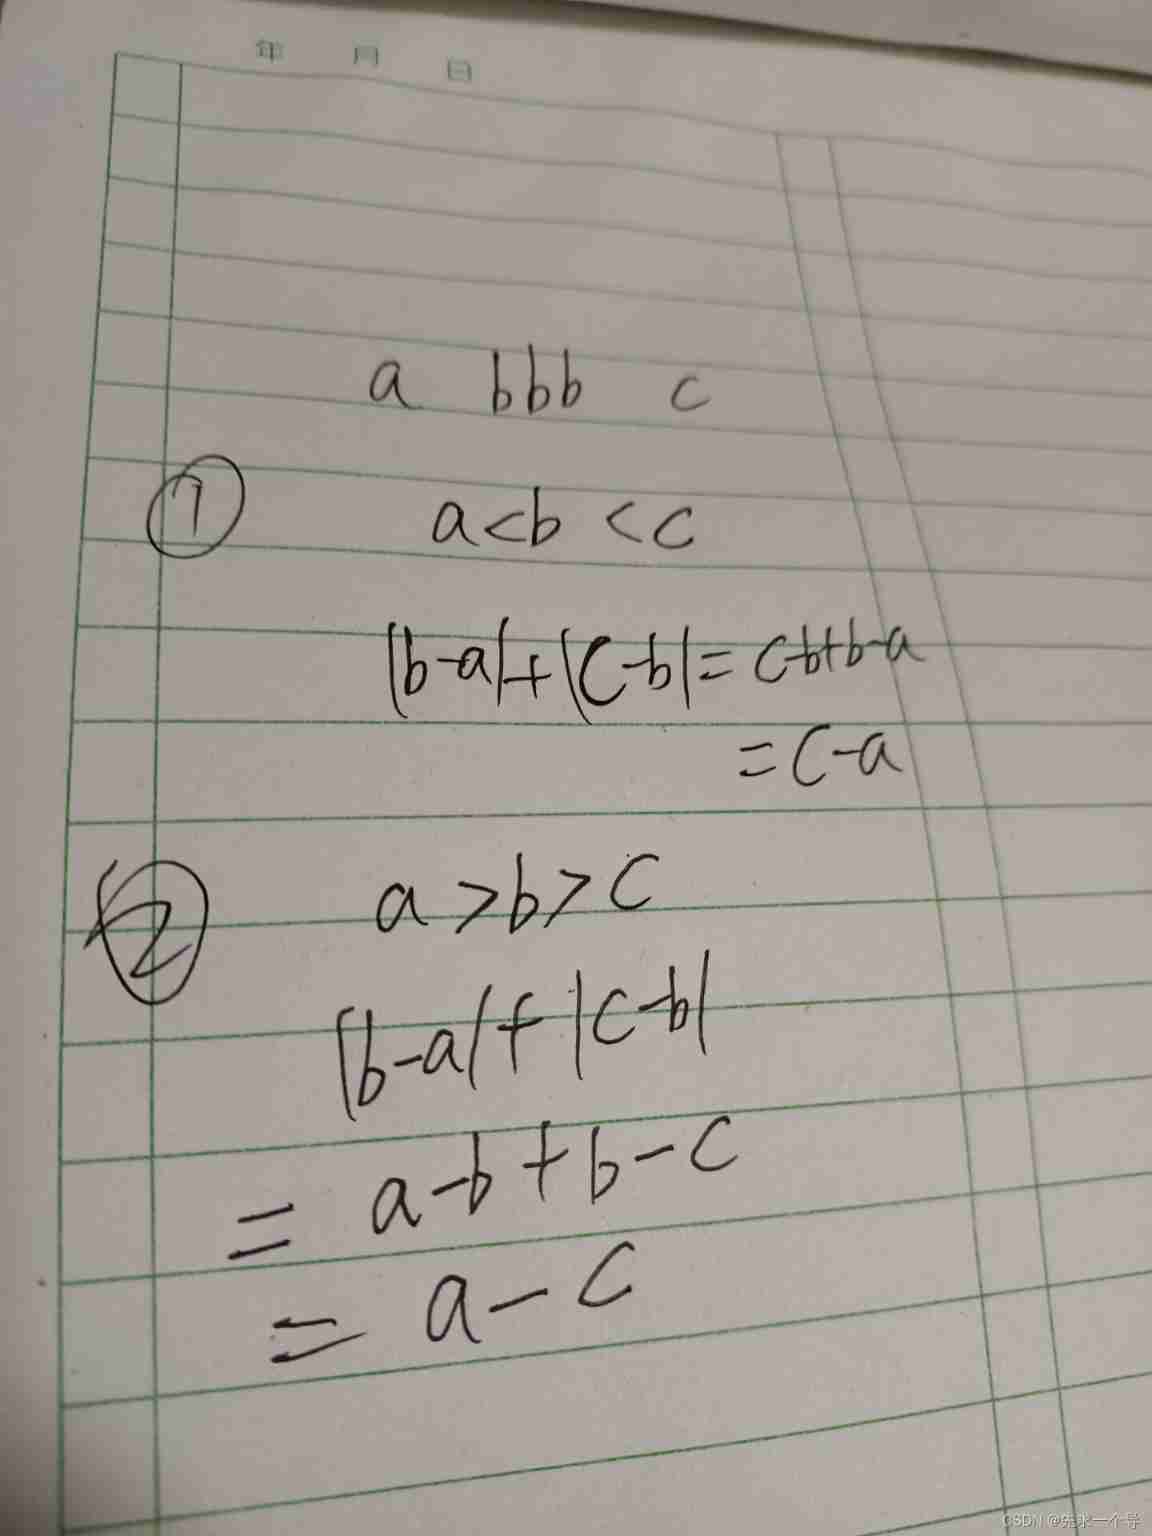 年 月 日
a bbb c
① a<b<c
|b-a|+|c-b|=c-b+b-a
=c-a
② a>b>c
|b-a|+|c-b|
= a-b+b-c
= a-c
CSDN @先求一个导